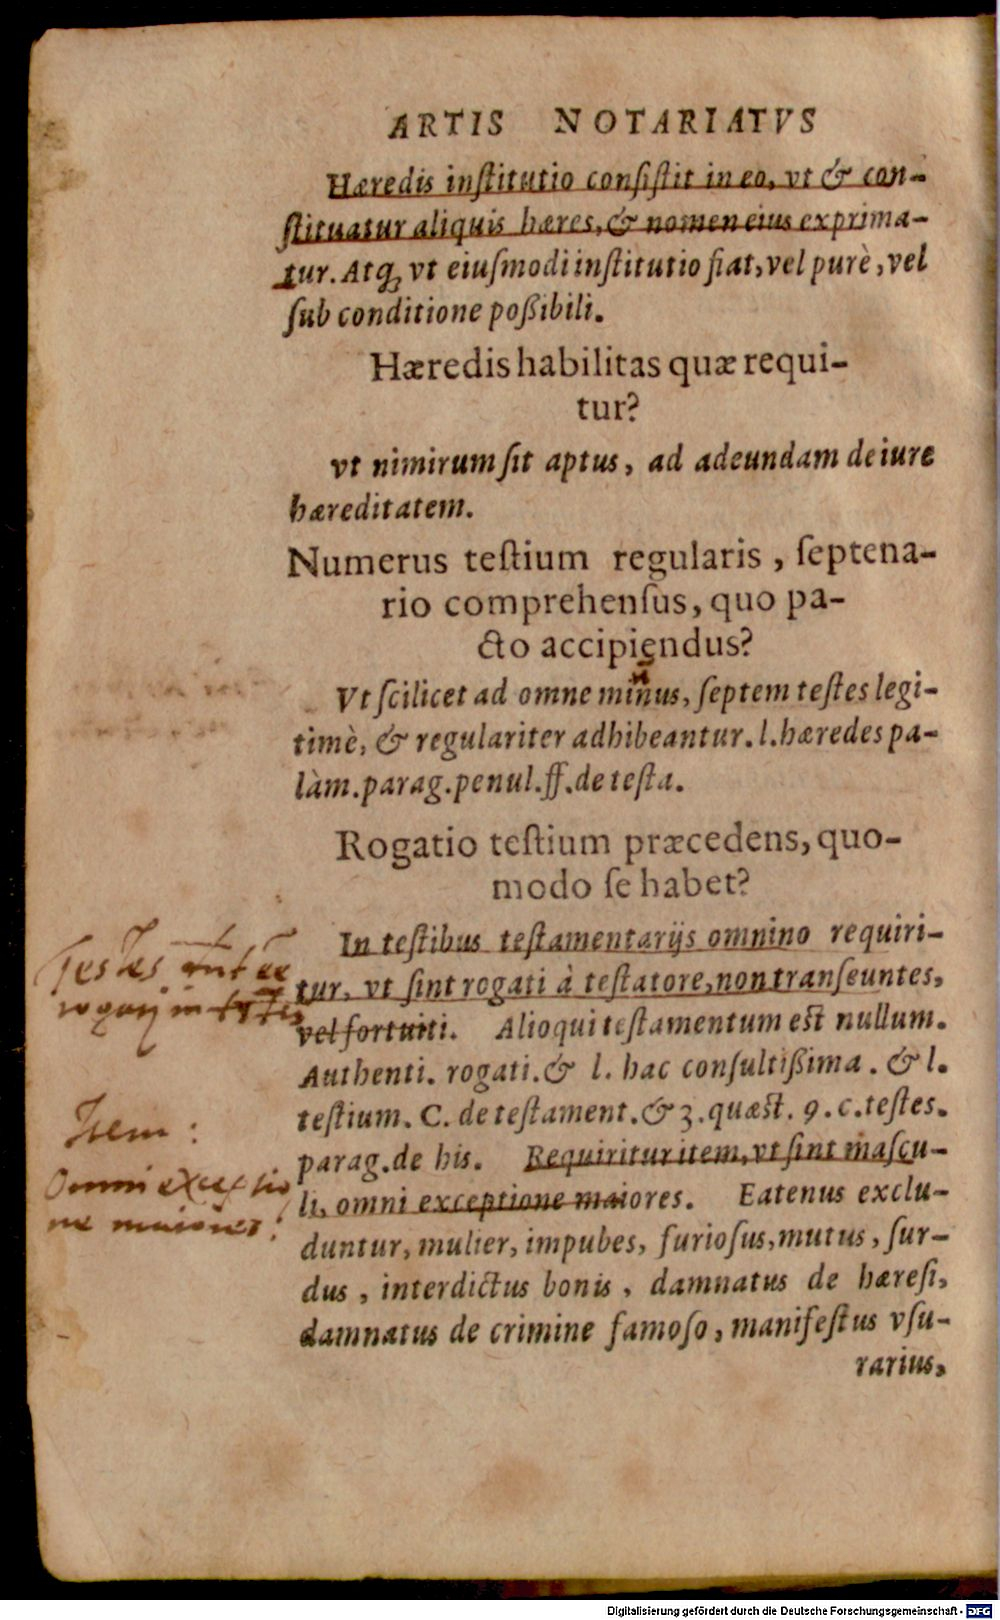 ARTIS NOTARIATVS
Hæredis inſtitutio conſiſtit in eo, vt & con-
ſtituatur aliquis hæres, & nomen eius exprima-
tur. Atq; vt eiuſmodi inſtitutio fiat, vel purè, vel
ſub conditione poßibili.
Hæredis habilitas quæ requi-
tur?
vt nimirum ſit aptus, ad adeundam de iure
hæreditatem.
Numerus teſtium regularis, ſeptena-
rio comprehenſus, quo pa-
cto accipiendus?
Vt ſcilicet ad omne minus, ſeptem teſtes legi-
timè, & regulariter adhibeantur. l. hæredes pa-
làm. parag. penul. ff. de teſta.
Rogatio teſtium præcedens, quo-
modo ſe habet?
In teſtibus teſtamentarijs omnino requiri-
tur, vt ſint rogati à teſtatore, non tranſeuntes,
vel fortuiti. Alioqui teſtamentum eſt nullum.
Authenti. rogati. & l. hac conſultißima. & l.
teſtium. C. de teſtament. & 3. quæſt. 9. c. teſtes.
parag. de his. Requiritur item, vt ſint maſcu-
li, omni exceptione maiores. Eatenus exclu-
duntur, mulier, impubes, furioſus, mutus, ſur-
dus, interdictus bonis, damnatus de hæreſi,
damnatus de crimine famoſo, manifeſtus vſu-
rarius,
Testes
rogati in
Item:
Omni exceptio
ne maiores:
Digitalisierung gefördert durch die Deutsche Forschungsgemeinschaft - DFG